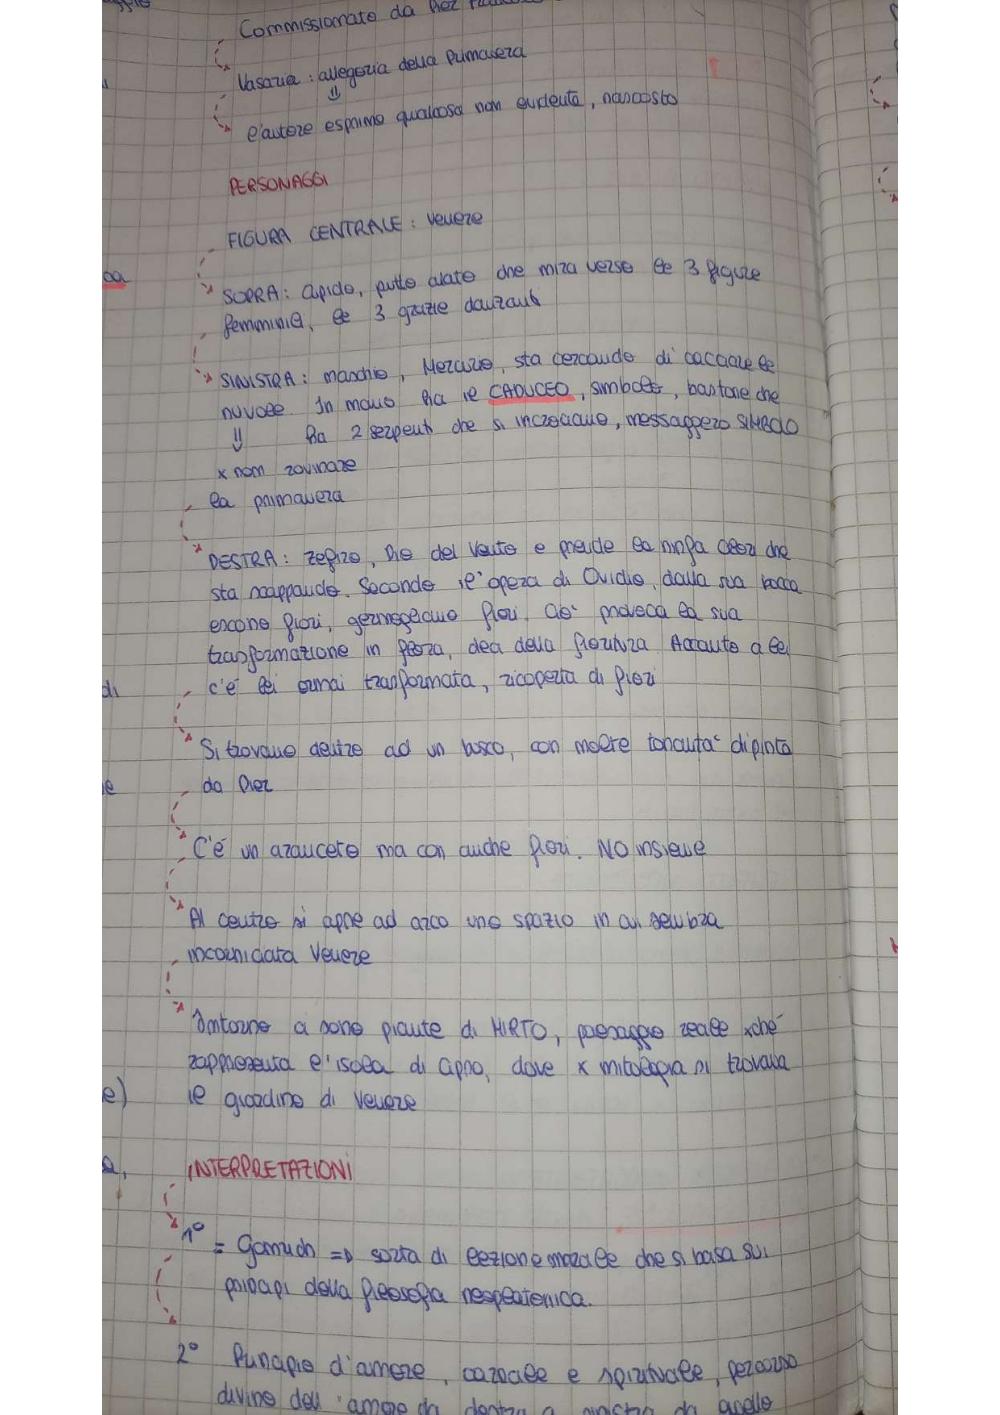 Commissionato da Pier
Vasari : allegoria della Primavera
⇓
l'autore esprime qualcosa non evidente, nascosto
PERSONAGGI
FIGURA CENTRALE : Venere
SOPRA : cupido, putto alato che mira verso le 3 figure
femminili, le 3 grazie danzanti
SINISTRA : maschio, Mercurio, sta cercando di cacciare le
nuvole. In mano ha il CADUCEO, simbolo, bastone che
⇓ ha 2 serpenti che si incrociano, messaggero SIMBOLO
x non rovinare
la primavera
DESTRA : zefiro, Dio del vento e prende la ninfa Clori che
sta scappando. Secondo l'opera di Ovidio, dalla sua bocca
escono fiori, germogliano fiori. Ciò provoca la sua
trasformazione in Flora, dea della fioritura. Accanto a lei
c'é lei ormai trasformata, ricoperta di fiori
Si trovano dentro ad un bosco, con molte tonalità dipinta
da Pier
C'é un aranceto ma con anche fiori. NO insieme
Al centro si apre ad arco uno spazio in cui sembra
incorniciata Venere
Intorno a sono piante di MIRTO, paesaggio reale xché
rappresenta l'isola di Cipro, dove x mitologia si trovava
il giardino di Venere
INTERPRETAZIONI
1° = Gombrich => sorta di lezione morale che si basa sui
principi della filosofia neoplatonica.
2° Principio d'amore, carnale e spirituale, percorso
divino dell'amore da destra a sinistra da quello